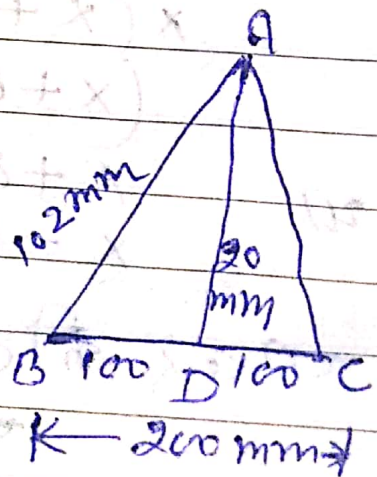 A
102mm
20
mm
B 100 D 100 C
200mm